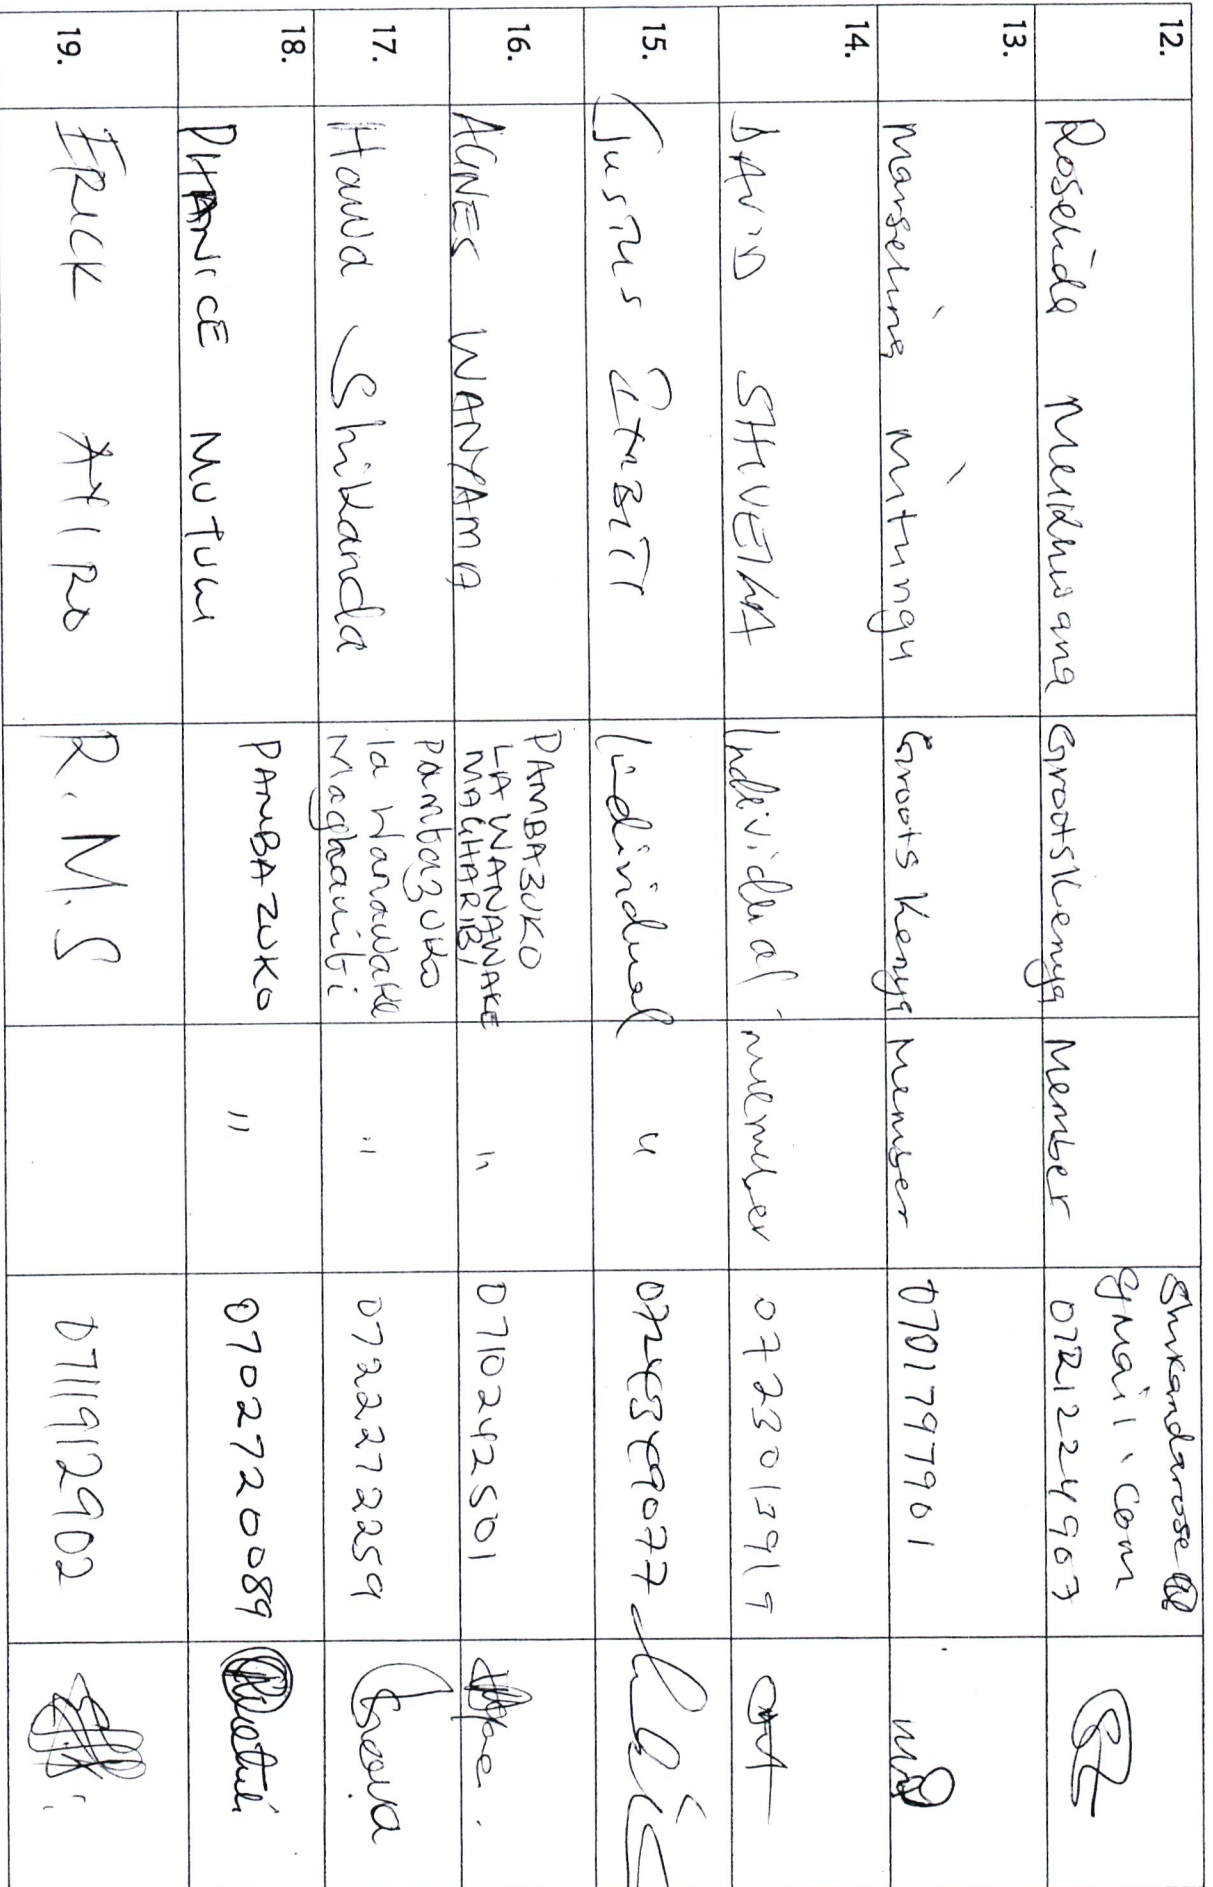 12. Roselida Mukhwana Groots Kenya Member shikandarose@
gmail.com
0721224907
13. Manselina Mitungu Groots Kenya Member 0701797901
14. DAVID SHIVEKA Individual member 0723013919
15. Justus Individual " 
16. AGNES WANYAMA PAMBAZUKO
LA WANAWAKE
MAGHARIBI " 0710242501
17. Hawa Shikanda Pambazuko
la Wanawake
Magharibi " 0722272259
18. PHANICE MUTUKU PAMBAZUKO " 0702720089
19. ERICK AYIRO R.M.S 0711912902